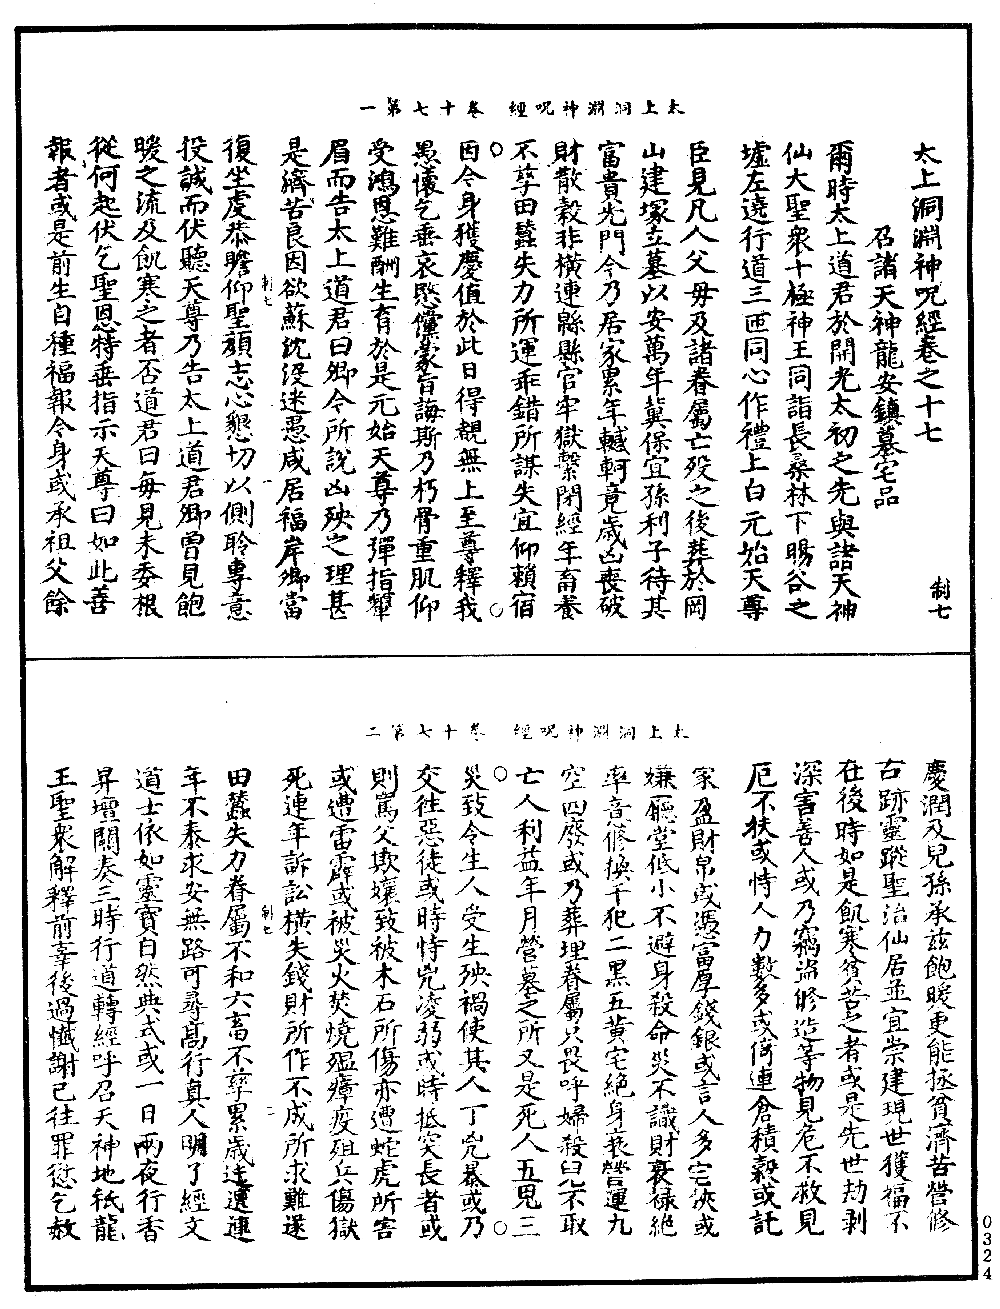 太上洞淵神呪經 卷十七 第一
太上洞淵神呪經卷之十七
制七
召諸天神龍安鎮墓宅品
爾時太上道君於開光太初之先與諸天神
仙大聖衆十極神王同詣長桑林下暘谷之
墟左遶行道三匝同心作禮上白元始天尊
臣見凡人父母及諸眷屬亡殁之後葬於岡
山建塚立墓以安萬年冀保宜孫利子待其
富貴先門今乃居家累年轗軻竟歲凶喪破
財散穀非橫連縣縣官牢獄繫閉經年畜養
不孳田蠶失力所運乖錯所謀失宜仰賴宿
因今身獲慶值於此日得覩無上至尊釋我
愚懷乞垂哀愍儻蒙旨誨斯乃朽骨重肌仰
受鴻恩難酬生育於是元始天尊乃彈指顰
眉而告太上道君曰卿今所說凶殃之理甚
是濟苦良因欲蘇沈没迷愚咸居福岸卿當
制七 一
復坐虔恭瞻仰聖顔志心懇切以側聆專意
投誠而伏聽天尊乃告太上道君卿曾見飽
暖之流及飢寒之者否道君曰每見未委根
從何起伏乞聖恩特垂指示天尊曰如此善
報者或是前生自種福報今身或承祖父餘
太上洞淵神呪經 卷十七 第二
慶潤及兒孫承兹飽暖更能拯貧濟苦營修
古跡靈蹤聖治仙居並宜崇建現世獲福不
在後時如是飢寒貧苦之者或是先世劫剥
深害善人或乃竊盜修造等物見危不救見
厄不扶或恃人力數多或倚連倉積穀或託
家盈財帛或憑富厚錢銀或言人多宅狹或
嫌廳堂低小不避身殺命災不識財衰禄絶
率意修換干犯二黑五黄宅絶身衰營運九
空四廢或乃葬埋眷屬只畏呼婦殺兒不取
亡人利益年月營墓之所又是死人五鬼三
災致令生人受生殃禍使其人丁兇暴或乃
交往惡徒或時恃兇凌弱或時抵突長者或
則罵父欺孃致被木石所傷亦遭蛇虎所害
或遭雷霹或被災火焚燒瘟瘴疫殂兵傷獄
死連年訴訟橫失錢財所作不成所求難遂
制七 二
田蠶失力眷屬不和六畜不孳累歲迍邅連
年不泰求安無路可尋高行真人明了經文
道士依如靈寶自然典式或一日兩夜行香
昇壇關奏三時行道轉經呼召天神地祇龍
王聖衆解釋前辜後過懺謝已往罪愆乞赦
0324